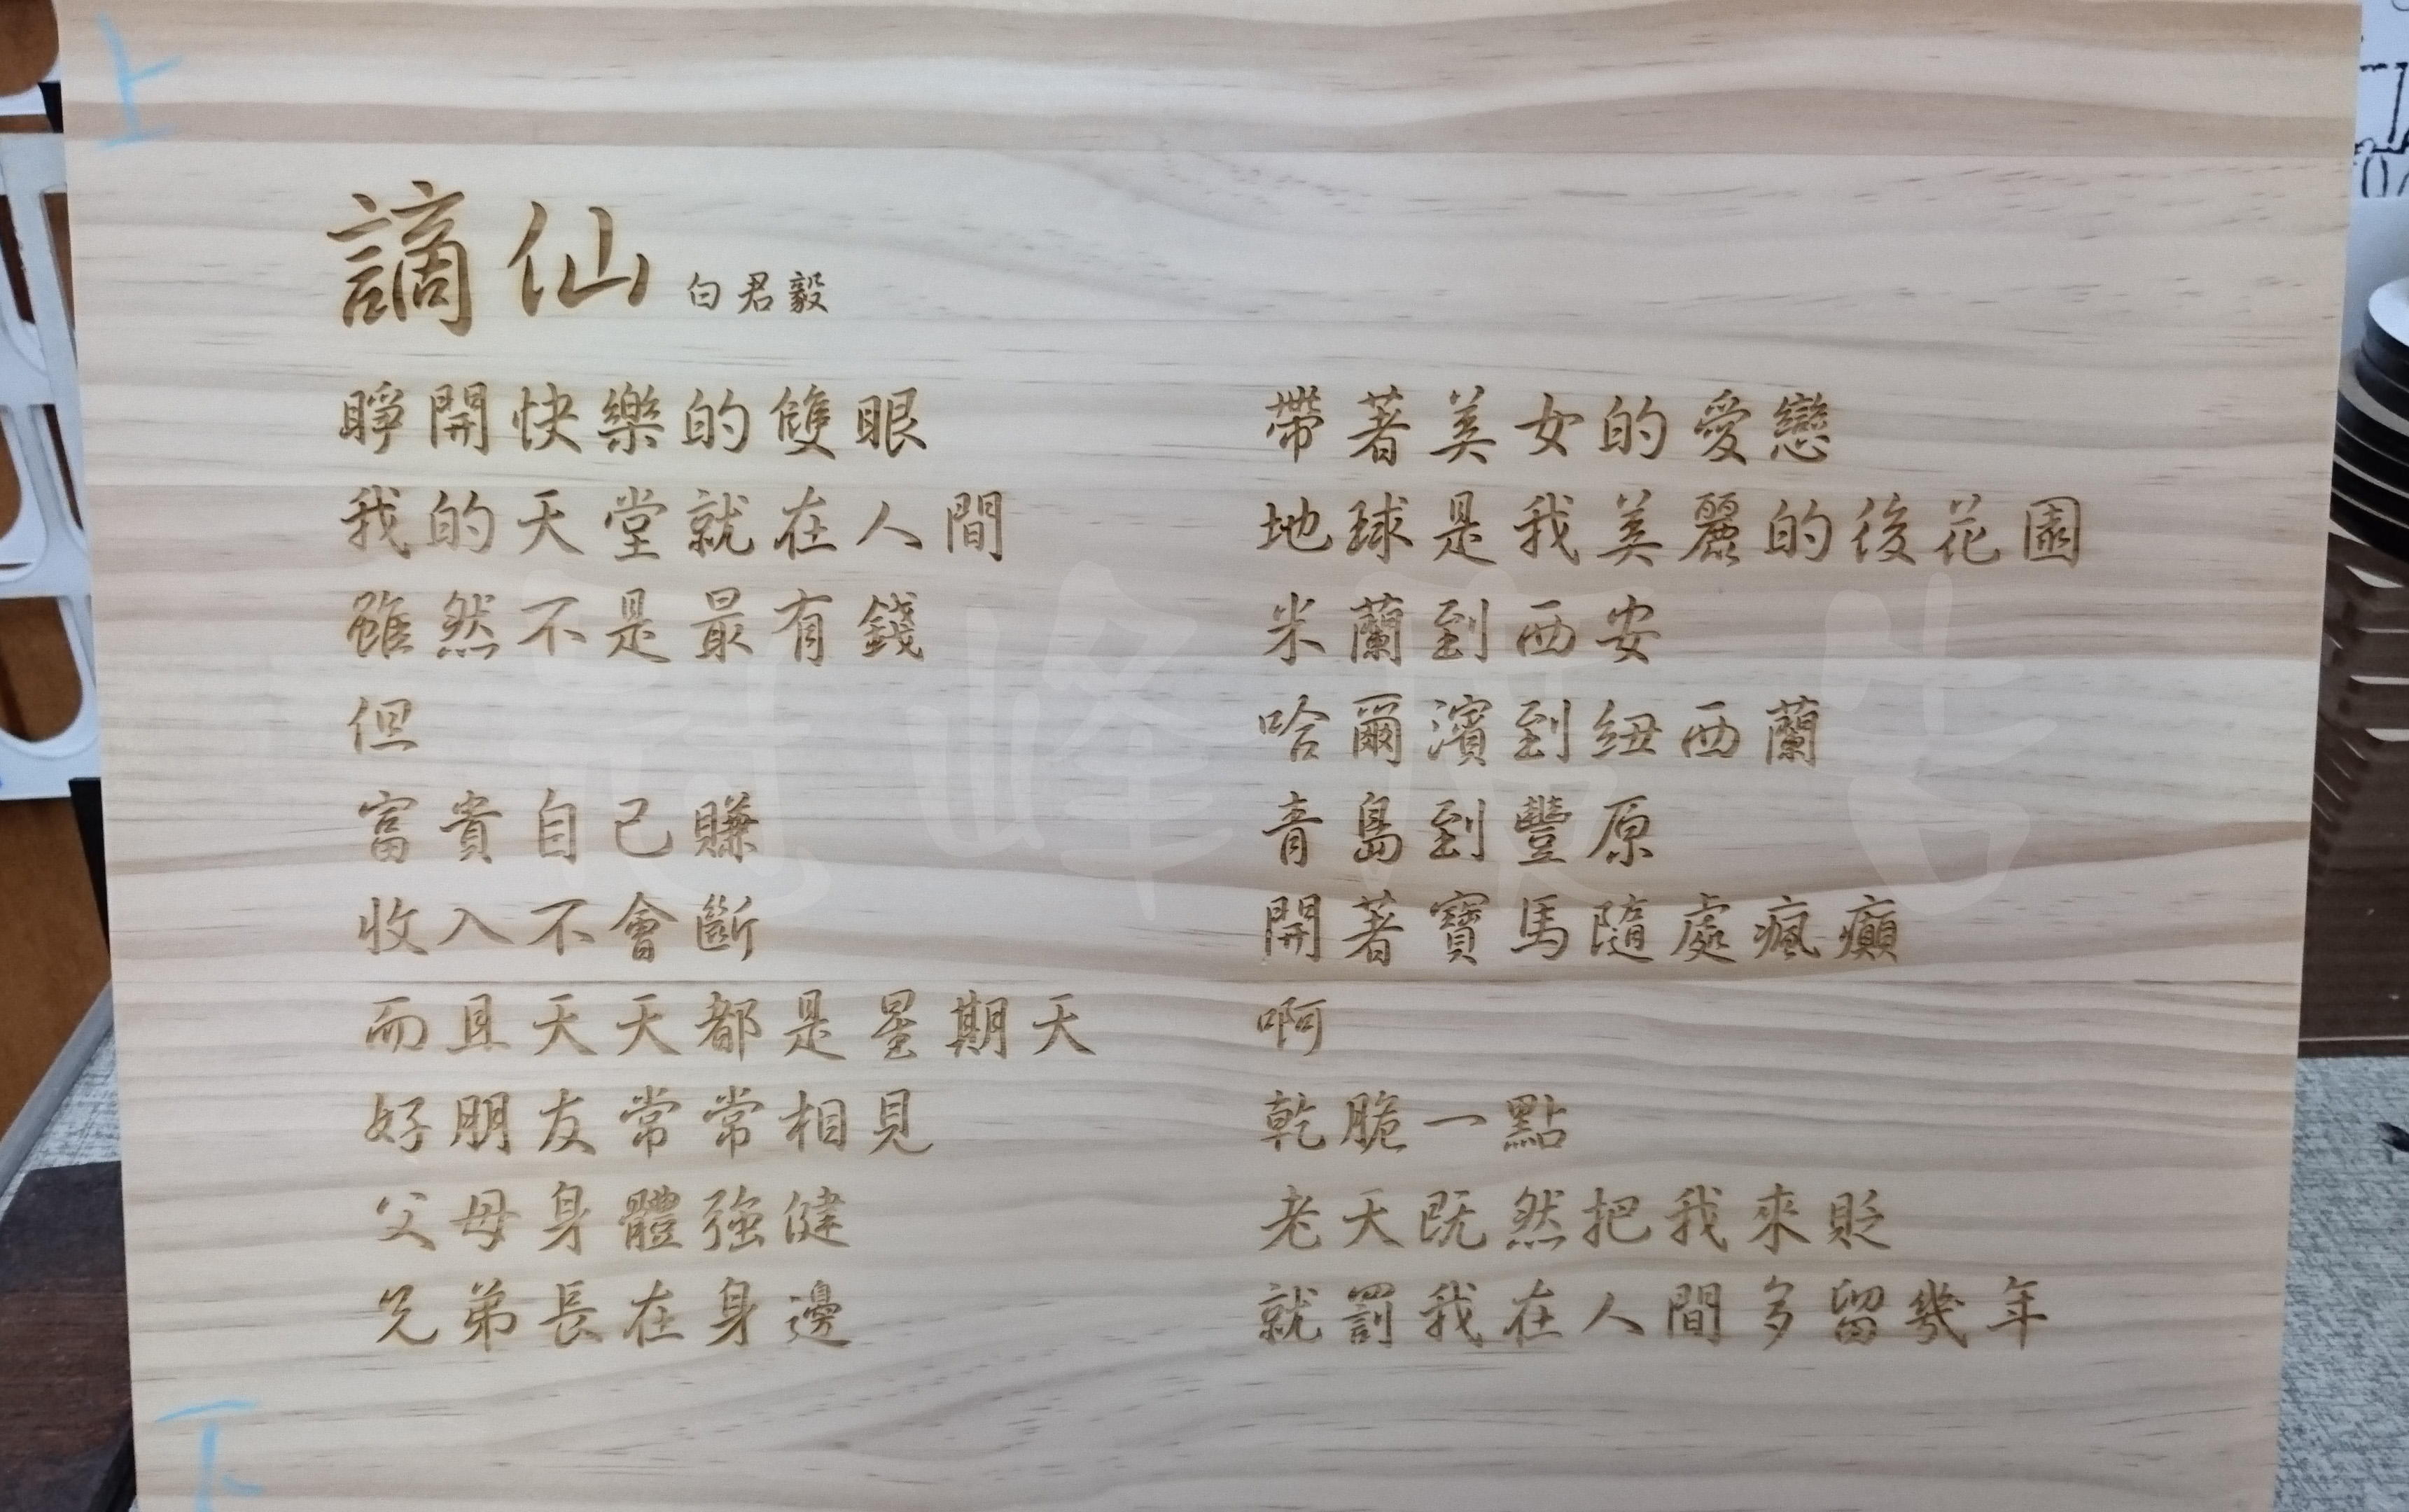 上
謫仙 白君毅
睜開快樂的雙眼
我的天堂就在人間
雖然不是最有錢
但
富貴自己賺
收入不會斷
而且天天都是星期天
好朋友常常相見
父母身體強健
兄弟長在身邊
帶著美女的愛戀
地球是我美麗的後花園
米蘭到西安
哈爾濱到紐西蘭
青島到豐原
開著寶馬隨處瘋癲
啊
乾脆一點
老天既然把我來貶
就罰我在人間多留幾年
下
冠峰廣告